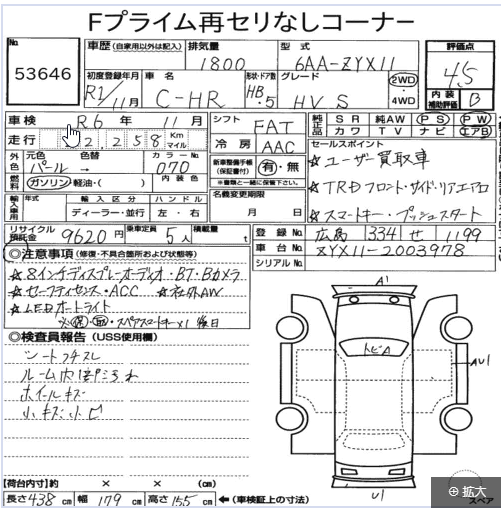 Fプライム再セリなしコーナー
No.
53646
車歴 (自家用以外は記入)
排気量
1800
型式
6AA-ZYX11
評価点
4.5
初度登録年月
R1/11月
車名
C-HR
形状・ドア数
HB・5
グレード
HV S
2WD
・4WD
内装補助評価
B
車検 R6年 11月
シフト
FAT
純正品
SR 純AW PS PW
カワ TV ナビ エアB
走行
2.258 Km マイル
冷房
AAC
セールスポイント
☆ユーザー買取車
外色
元色 色替 カラーNo.
パール→ 070
新車整備手帳(保証書付)
有・無
※書類と一緒に保管下さい。
☆TRDフロント・サイド・リアエアロ
燃料
ガソリン・軽油・( )
内装色
名義変更期限
月 日
☆スマートキー・プッシュスタート
輸入車用
年式 輸入区分 ハンドル
ディーラー・並行 左・右
リサイクル預託金
9620円
乗車定員
5人
積載量
登録No.
広島 334 せ 1199
車台No.
ZYX11-2003978
シリアルNo.
◎注意事項 (修復・不具合箇所および状態等)
☆8インチディスプレーオーディオ・BT・Bカメラ
☆セーフティセンス・ACC ☆社外AW
☆LEDオートライト
※保・取・スペアスマートキー×1 後日
◎検査員報告 (USS使用欄)
シートコゲ スレ
ルーム内
ホイールキズ
小キズ 小ヒ
A1
トビA
AU1
U1
【荷台内寸】約 × × (cm)
長さ 438 cm 幅 179 cm 高さ 155 cm ←(車検証上の寸法)
拡大
スペア